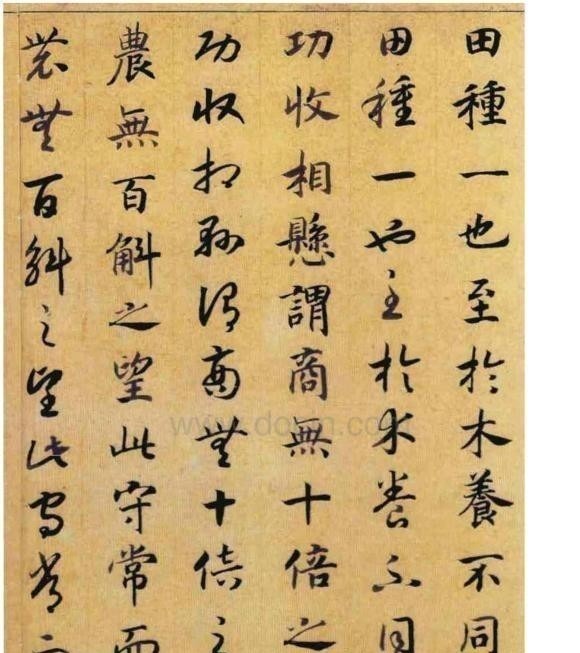 田種一也至於木養不同
田種一也至於水養不同
功收相懸謂商無十倍之
功收相懸謂商無十倍之
農無百斛之望此守常而
農無百斛之望此守常而